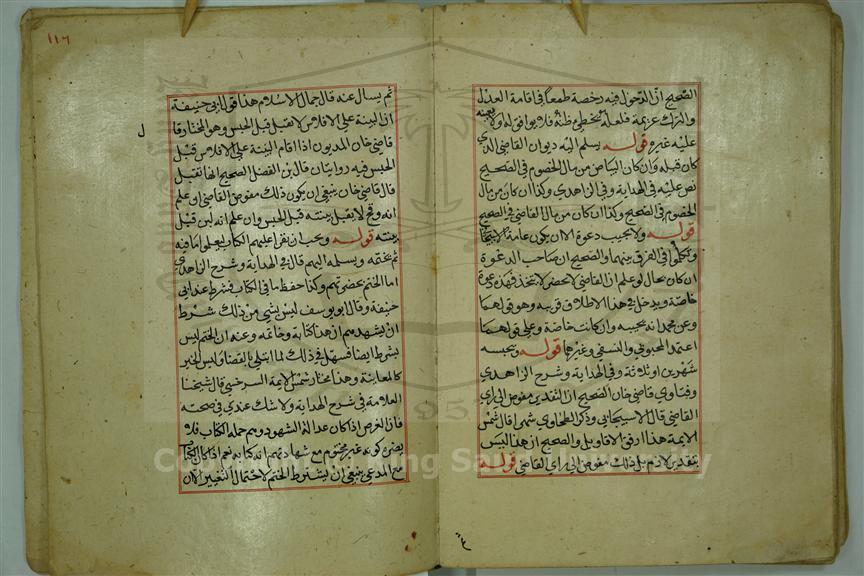 الصحيح ان الدخول فيه رخصة طمعا في اقامة العدل
والترك عزيمة فلعله يخطي ظنه فلا يوافق له ولا يعينه
عليه غيره قوله يسلم اليه ديوان القاضي الذي
كان قبله وان كان البياض من مال الخصوم في الصحيح
نص عليه في الهداية وفي الزاهدي وكذا ان كان من مال
الخصوم في الصحيح وكذا ان كان من مال القاضي في الصحيح
قوله ولا يجيب دعوة الا ان يكون عامة
وتكلموا في الفرق بينهما والصحيح ان صاحب الدعوة
ان كان بحال لو علم ان القاضي لا يحضر لا يتخذ فهذه دعوة
خاصة ويدخل في هذا الاطلاق قريبه وهو قولهما
وعن محمد انه يجيبه وان كانت خاصة وعلى قولهما
اعتمد المحبوبي والنسفي وغيرهما قوله ويحبسه
شهرين او ثلاثة وفي الهداية وشرح الزاهدي
وفتاوي قاضي خان الصحيح ان التقدير مفوض الى راي
القاضي قال الاسبيجابي وذكر الطحاوي شهرا قال شمس
الايمة هذا ارفق الاقاويل والصحيح ان هذا ليس
بتقدير لازم بل ذلك مفوض الى راي القاضي قوله
١١٦
ثم يسال عنه قال جمال الاسلام هذا قول ابي حنيفة
ان البينة على الافلاس لا تقبل قبل الحبس وهو المختار قا
قاضي خان المديون اذا اقام البينة على الافلاس قبل
الحبس فيه روايتان قال بن الفضل الصحيح انها تقبل
قال قاضي خان ينبغي ان يكون ذلك مفوض القاضي ان علم
انه وقح لا يقبل بينته قبل الحبس وان علم انه لين قبل
بينته قوله ويجب ان يقرا عليهم الكتاب ليعلموا ما فيه
ثم يختمه ويسلمه اليهم قال في الهداية وشرح الزاهدي
اما الختم بحضرتهم وكذا حفظ ما في الكتاب فشرط عند ابي
حنيفة وقال ابو يوسف ليس شي من ذلك شرط
ان يشهدهم ان هذا كتابه وخاتمه وعنه ان الختم ليس
بشرط ايضا فسهل في ذلك لما ابتلي بالقضاء وليس الخبر
كالمعاينة وهذا مختار شمس الايمة السرخسي قال شيخنا
العلامة في شرح الهداية ولا شك عندي في صحته
فان الغرض اذا كان عدالة الشهود وهم حملة الكتاب فلا
يضره كونه غير مختوم مع شهادتهم انه كتابه نعم اذا كان الكتاب
مع المدعي ينبغي ان يشترط الختم لاحتمال التغيير الا ان